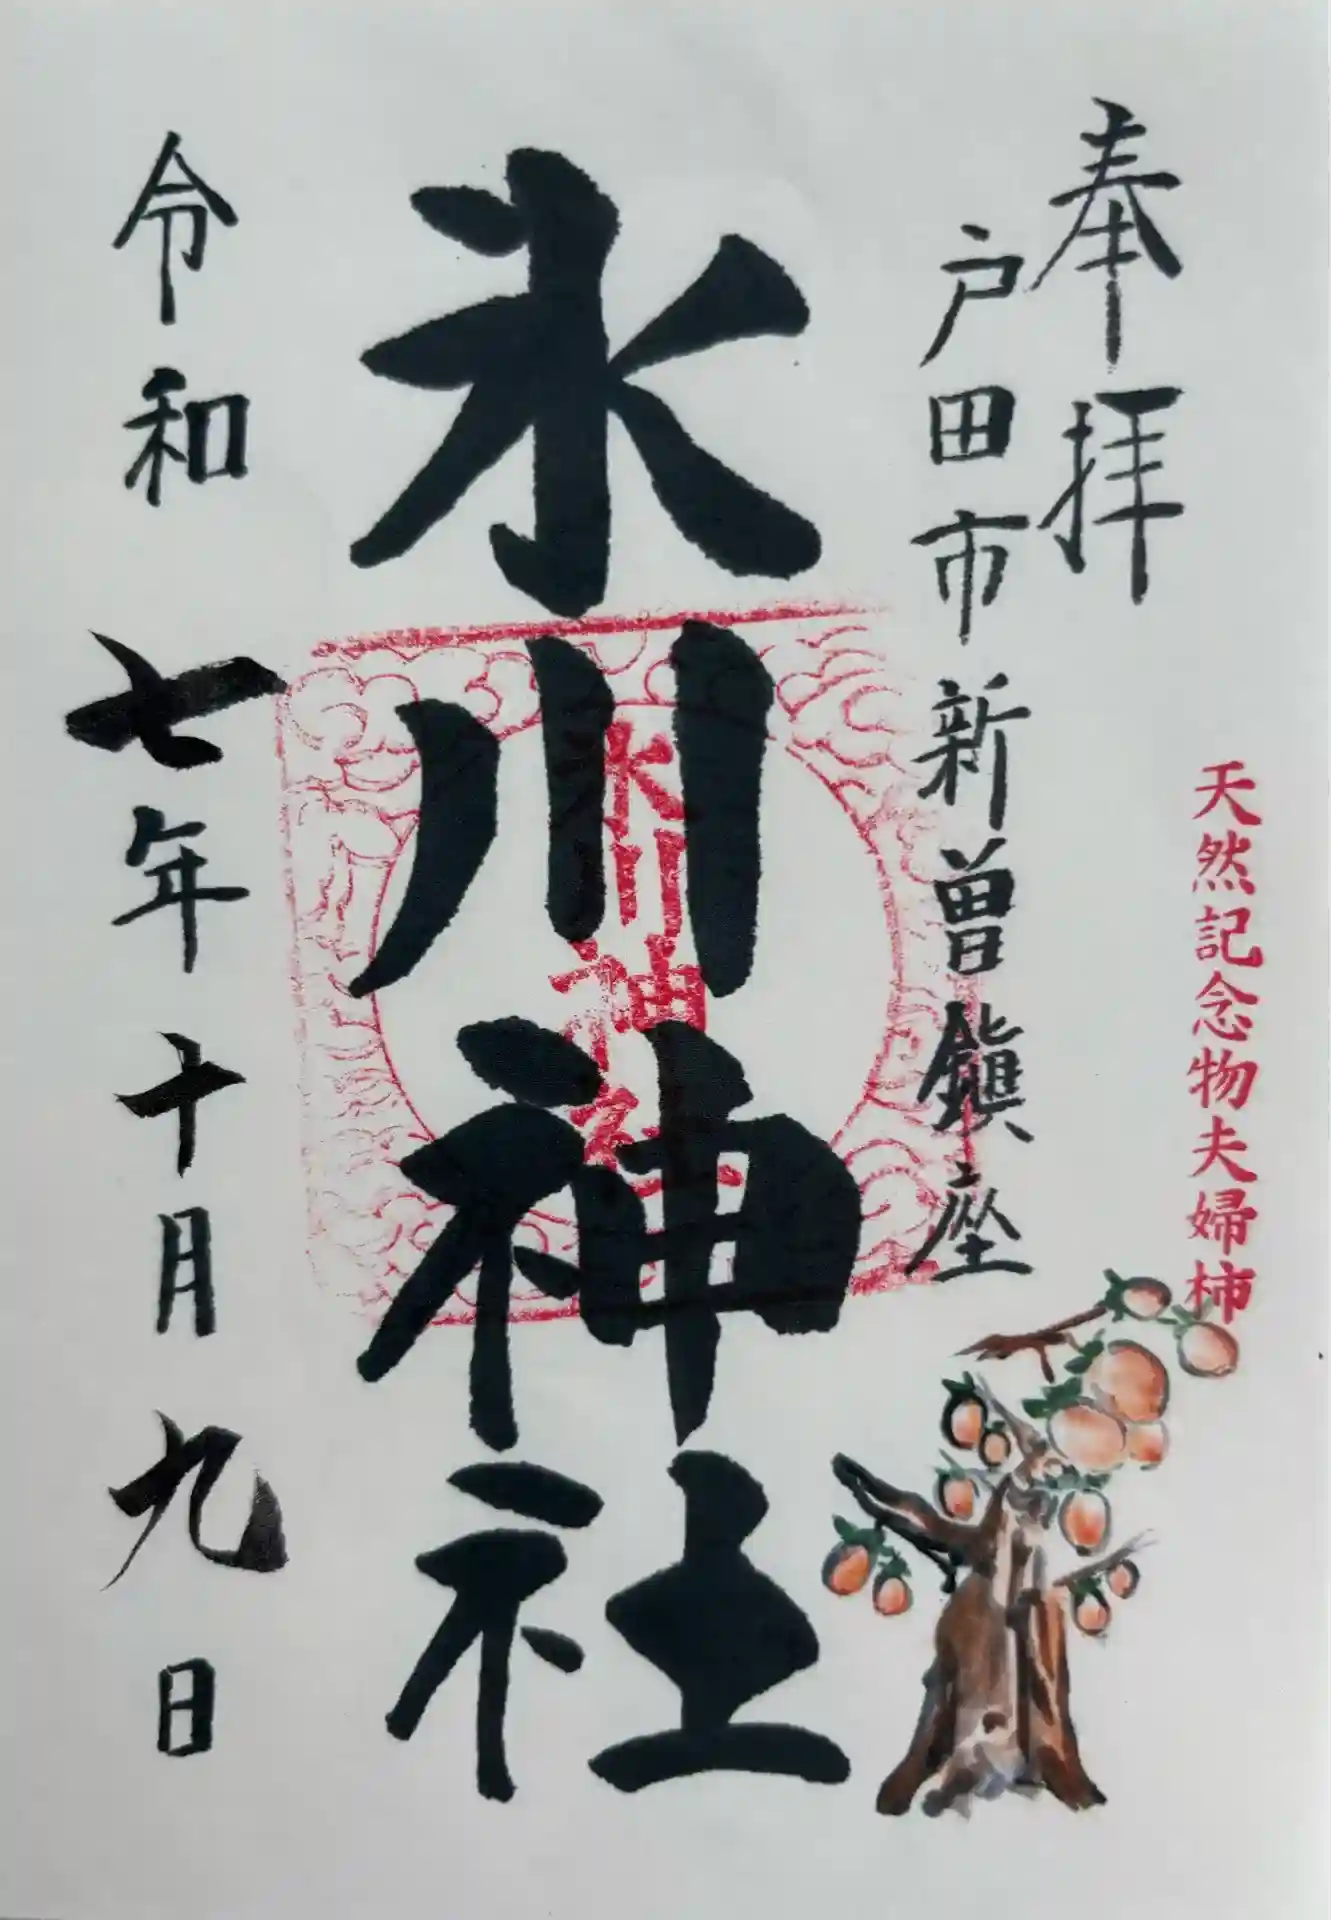 奉拝
天然記念物夫婦柿
戸田市新曽鎮座
氷川神社
氷川神社
令和七年十月九日